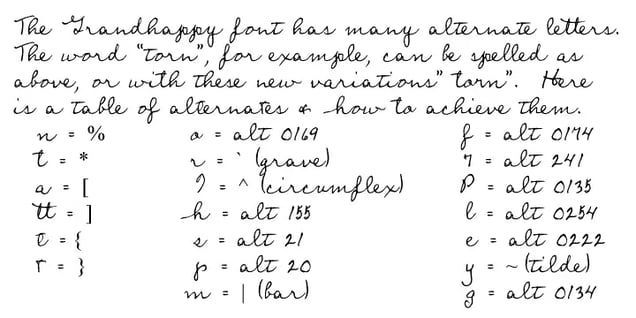 The Grandhappy font has many alternate letters.
The word "torn", for example, can be spelled as
above, or with these new variations" torn". Here
is a table of alternates & how to achieve them.
n = % o = alt 0169 f = alt 0174
t = * r = ` (grave) 7 = alt 241
a = [ ? = ^ (circumflex) P = alt 0135
tt = ] h = alt 155 l = alt 0254
t = { s = alt 21 e = alt 0222
r = } p = alt 20 y = ~ (tilde)
m = | (bar) g = alt 0134